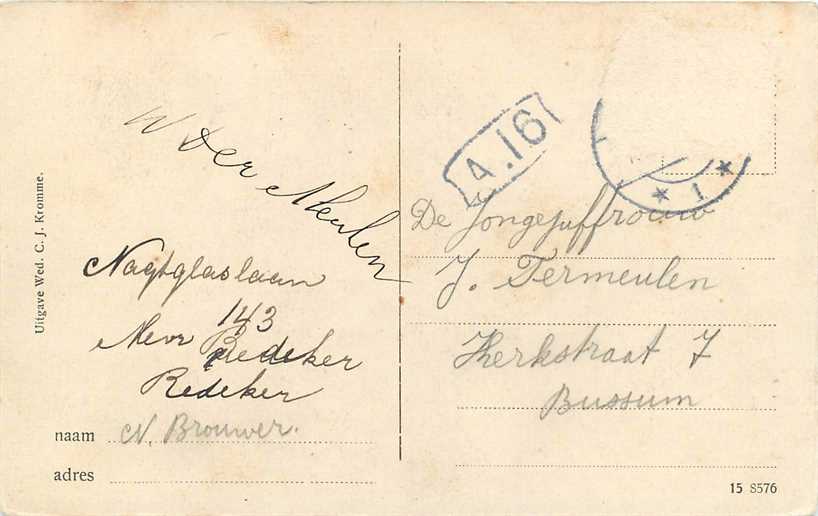 Uitgave Wed. C. J. Kromme.
W Ter Meulen
Nagtglaslaan
143
Mevr Redeker
Redeker
naam N. Brouwer.
adres
A.16
1
De Jongejuffrouw
J. Termeulen
Kerkstraat 7
Bussum
15 8576